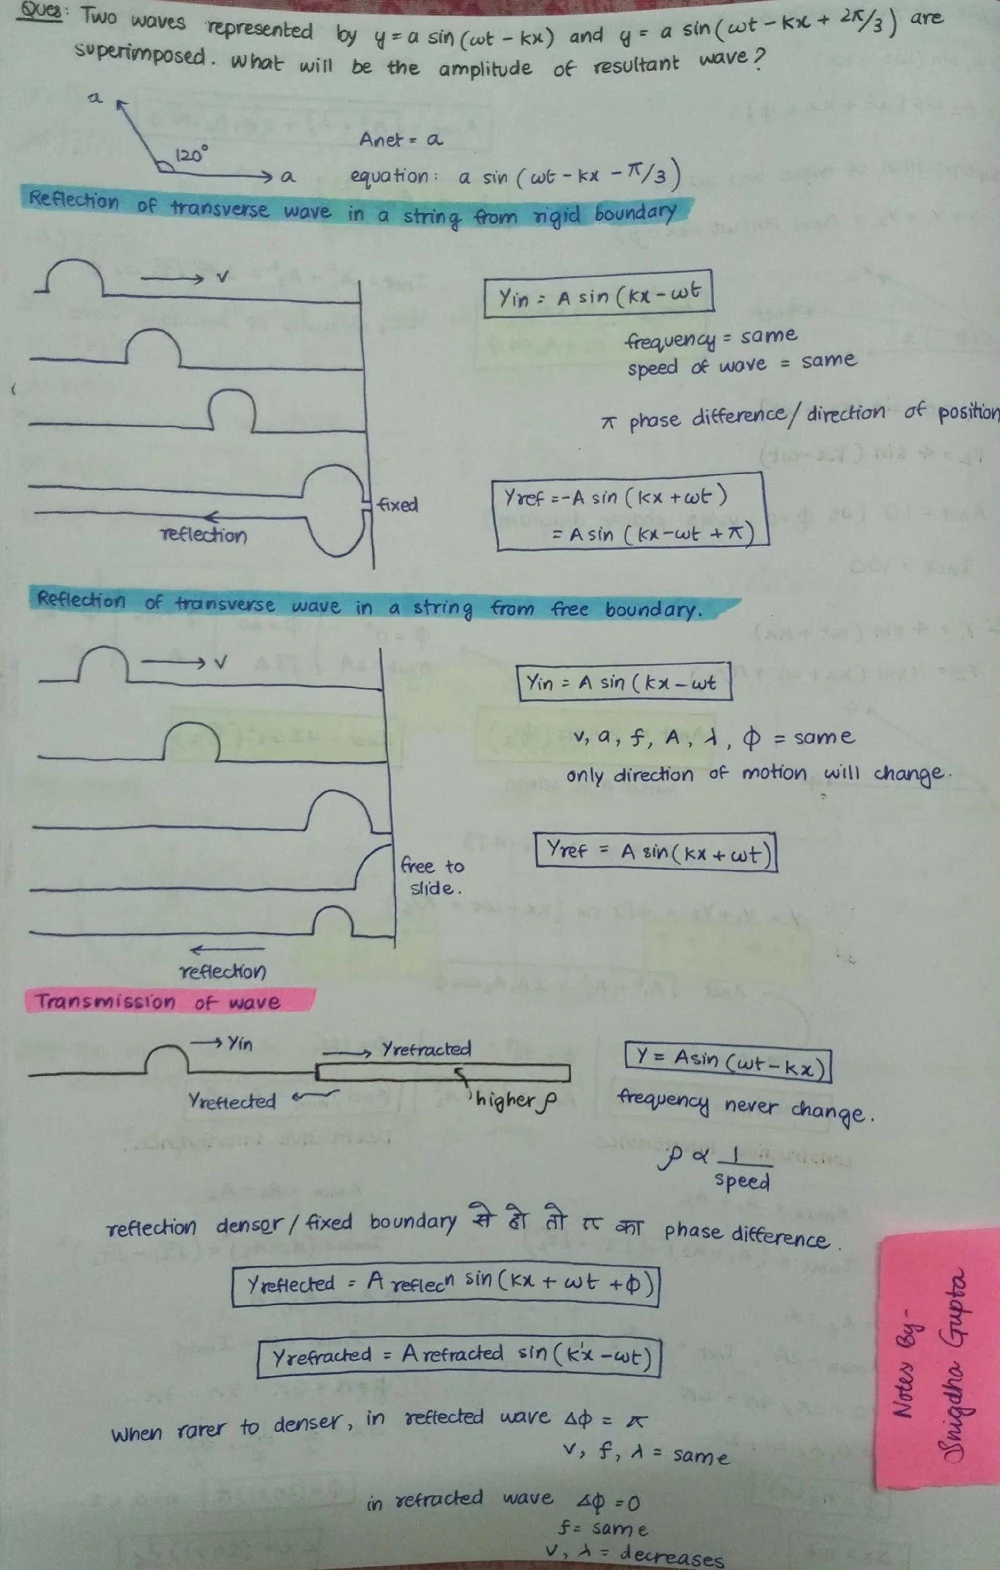 Ques: Two waves represented by y = a sin (ωt - kx) and y = a sin (ωt - kx + 2π/3) are
superimposed. What will be the amplitude of resultant wave?
a
120°
a
Anet = a
equation: a sin (ωt - kx - π/3)
Reflection of transverse wave in a string from rigid boundary
v
Yin = A sin (kx - ωt
frequency = same
speed of wave = same
π phase difference/direction of position
fixed
reflection
Yref = -A sin (kx + ωt)
= A sin (kx - ωt + π)
Reflection of transverse wave in a string from free boundary.
v
Yin = A sin (kx - ωt
v, a, f, A, λ, ϕ = same
only direction of motion will change.
free to
slide.
Yref = A sin (kx + ωt)
reflection
Transmission of wave
→ Yin
→ Yrefracted
Yreflected ←
higher ρ
Y = A sin (ωt - kx)
frequency never change.
ρ ∝ 1/speed
reflection denser/fixed boundary से हो तो π का phase difference.
Yreflected = A reflecn sin (kx + ωt + ϕ)
Yrefracted = A refracted sin (k'x - ωt)
When rarer to denser, in reflected wave Δϕ = π
v, f, λ = same
in refracted wave Δϕ = 0
f = same
v, λ = decreases
Notes By-
Snigdha Gupta